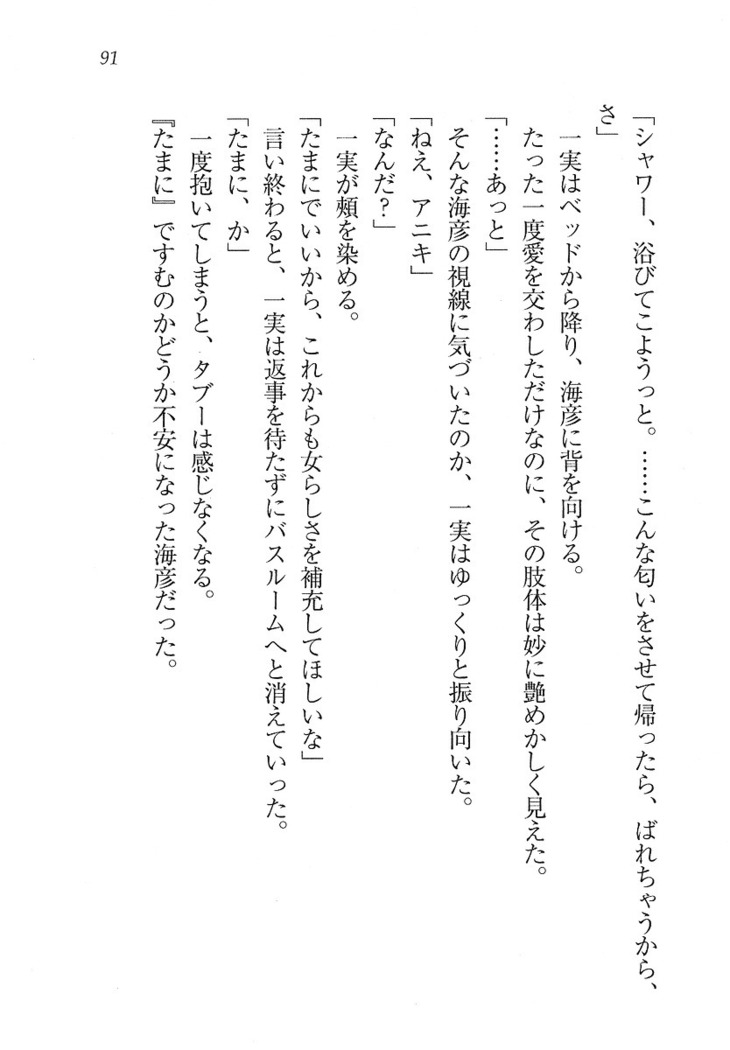 91
「シャワー、浴びてこようっと。……こんな匂いをさせて帰ったら、ばれちゃうから、
さ」
一実はベッドから降り、海彦に背を向ける。
たった一度愛を交わしただけなのに、その肢体は妙に艶めかしく見えた。
「……あっと」
そんな海彦の視線に気づいたのか、一実はゆっくりと振り向いた。
「ねえ、アニキ」
「なんだ？」
一実が頰を染める。
「たまにでいいから、これからも女らしさを補充してほしいな」
言い終わると、一実は返事を待たずにバスルームへと消えていった。
「たまに、か」
一度抱いてしまうと、タブーは感じなくなる。
『たまに』ですむのかどうか不安になった海彦だった。